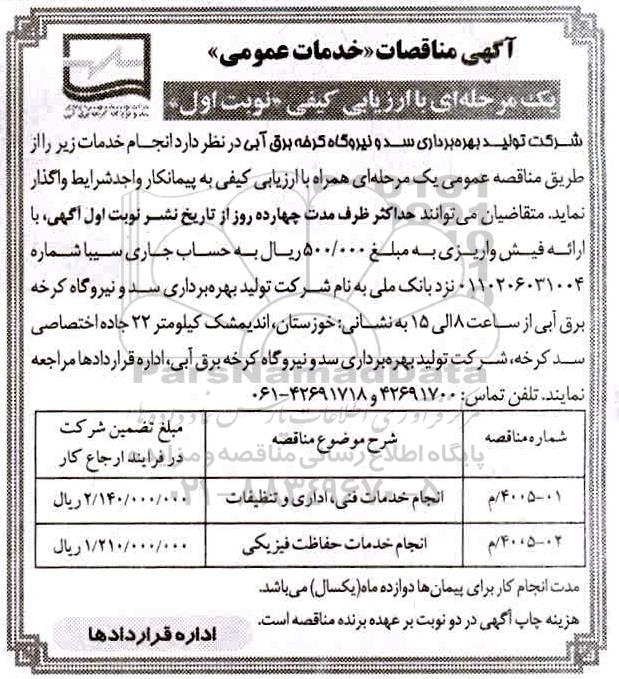 آگهی مناقصات «خدمات عمومی»
یک مرحله‌ای با ارزیابی کیفی «نوبت اول»
شرکت تولید بهره‌برداری سد و نیروگاه کرخه برق آبی در نظر دارد انجام خدمات زیر را از
طریق مناقصه عمومی یک مرحله‌ای همراه با ارزیابی کیفی به پیمانکار واجد شرایط واگذار
نماید. متقاضیان می‌توانند حداکثر ظرف مدت چهارده روز از تاریخ نشر نوبت اول آگهی، با
ارائه فیش واریزی به مبلغ ۵۰۰/۰۰۰ ریال به حساب جاری سیبا شماره
۰۱۱۰۲۰۶۰۳۱۰۰۴ نزد بانک ملی به نام شرکت تولید بهره‌برداری سد و نیروگاه کرخه
برق آبی از ساعت ۸ الی ۱۵ به نشانی: خوزستان، اندیمشک کیلومتر ۲۲ جاده اختصاصی
سد کرخه، شرکت تولید بهره‌برداری سد و نیروگاه کرخه برق آبی، اداره قراردادها مراجعه
نمایند. تلفن تماس: ۴۲۶۹۱۷۰۰ و ۴۲۶۹۱۷۱۸-۰۶۱
شماره مناقصه شرح موضوع مناقصه مبلغ تضمین شرکت
در فرایند ارجاع کار
۴۰۰۵-۰۱/م انجام خدمات فنی، اداری و تنظیفات ۲/۱۴۰/۰۰۰/۰۰۰ ریال
۴۰۰۵-۰۲/م انجام خدمات حفاظت فیزیکی ۱/۲۱۰/۰۰۰/۰۰۰ ریال
مدت انجام کار برای پیمان‌ها دوازده ماه (یکسال) می‌باشد.
هزینه چاپ آگهی در دو نوبت بر عهده برنده مناقصه است.
اداره قراردادها
ParsNamadData
مرکز فرآوری اطلاعات پارس نماد داده‌ها
پایگاه اطلاع رسانی مناقصه و مزایده
۰۲۱-۸۸۳۴۹۶۷۰-۵